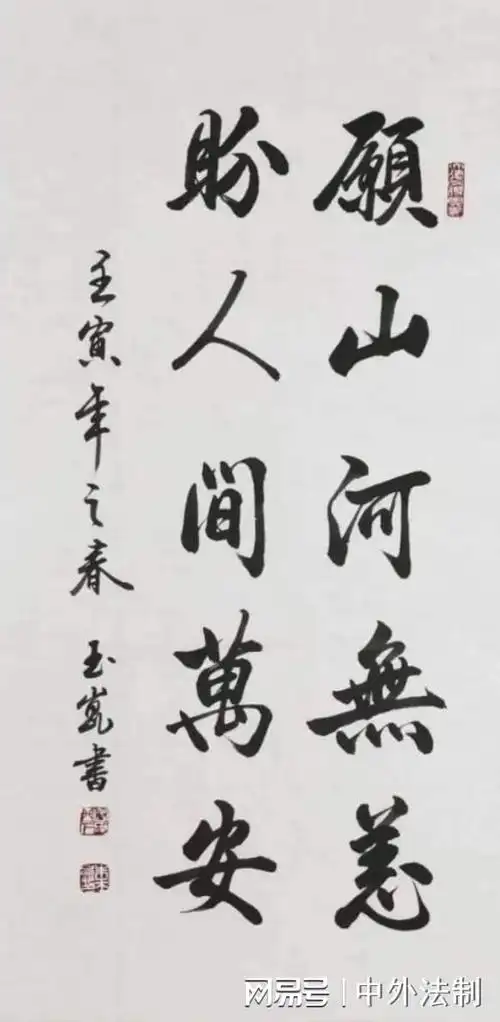 願山河無恙
盼人間萬安
壬寅年之春 玉崑書
网易号 | 中外法制